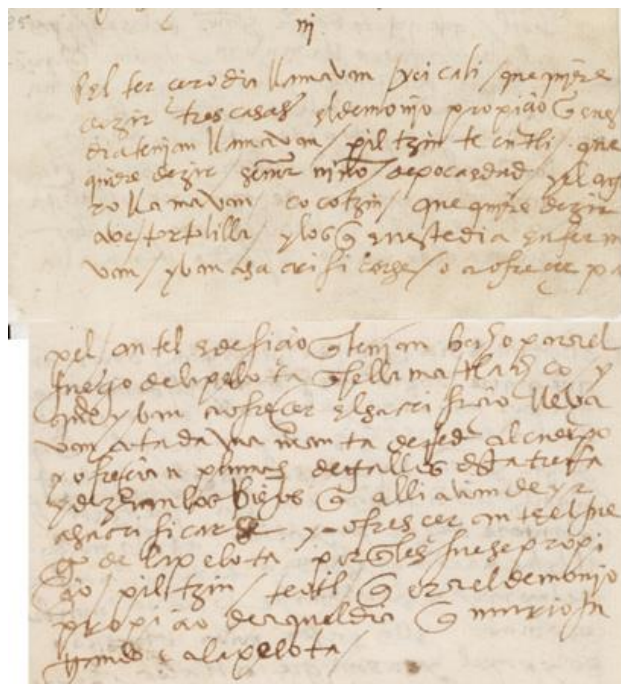 iij
El ter cero dia llamavan / yei cali / que quiere
dezir tres casas / el demonjo propicio q̃ en es
dia tenjan llamavan / piltzin te cutli / que
quiere dezir / señor niño / de poca edad / y el agu
ro llamavan / co cotzin / que quiere dezir
ave tortolilla / y los q̃ en este dia enferm
van / yvan a sa crifi carse / o a ofreçer pa
pel / an tel edeficio q̃ tenjan hecho para el
Juego de la pelo ta q̃ se llama tlachco y
que yvan a ofreçer el sacri ficio lleva
van atada una man ta de red al cuerpo
y ofreçian plumas de gallos
y dezian los viejos q̃ alli avian de yr
a sacri ficarse y ofresçer ante el jue
go de la pelota porq̃ les fuese propi
çio / piltzin / teutl q̃ era el demonjo
propiçio de aquel dia q̃ murio Ju
gando a la pelota /